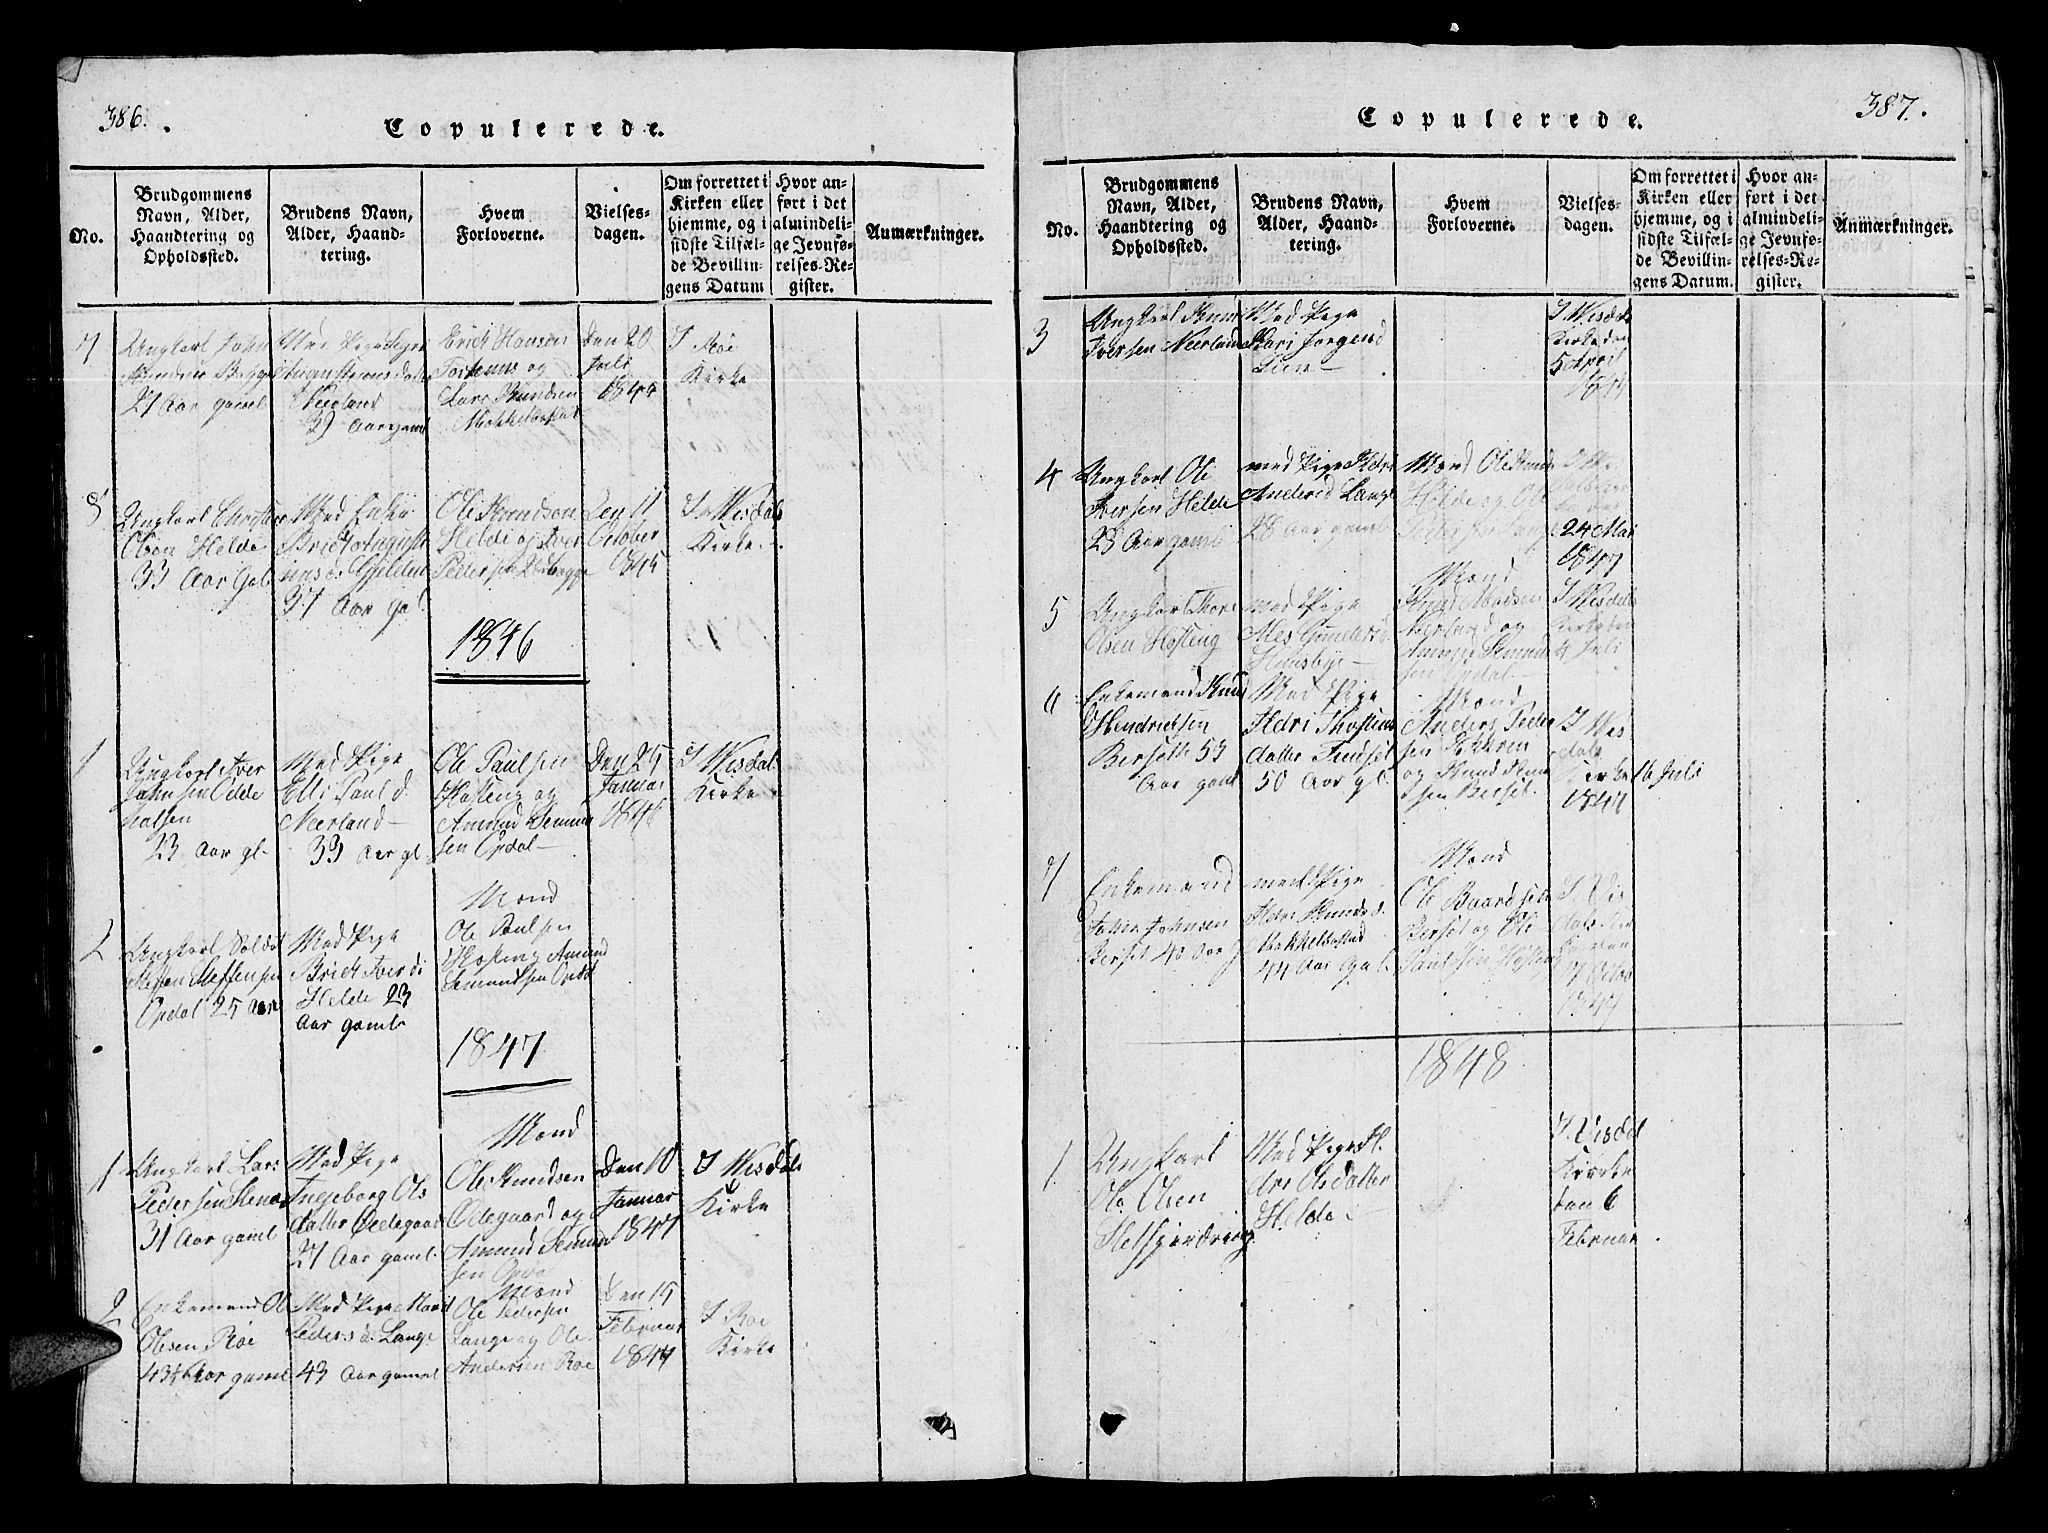 386.
Copulerede.
No.
Brudgommens
Navn, Alder,
Haandtering og
Opholdssted.
Brudens Navn,
Alder, Haand-
tering.
Hvem
Forloverne.
Vielses-
dagen.
Om forrettet i
Kirken eller
hjemme, og i
sidste Tilfæl-
de Bevillin-
gens Datum
Hvor an-
ført i det
almindeli-
ge Jevnfø-
relses-Re-
gister.
Anmærkninger.
7
Ungkarl John
27 Aar gaml
Med Pige
Neerland
39 Aar gaml
Erich Hansen
og
Lars Knudsen
Mokkelbostad
Den 20
Juli
1845
I Roe
Kirke
8
Ungkarl Christen
Olsen Helde
33 Aar gal
Med Enke
Brit August
37 Aar gal.
Ole Knudsen
Helde og Iver
Pedersen
Den 11
October
1845
I Wisdals
Kirke.
1846
1
Ungkarl Iver
Johnsen
23 Aar gl.
Med Pige
Elli Paul d.
Neerland
39 Aar gl.
Ole Paulsen
Hosteng og
Amund Semun
sen Opdal
Den 25
Januar
1846
I Wisdal
Kirke
2
Ungkarl Soldat
Steffen Steffensen
Opdal 25 Aar
Med Pige
Brit Iversd.
Helde 23
Aar gaml
Mond
Ole Paulsen
Hosteng Amund
Semundsen Opdal
1847
1
Ungkarl Lars
Pedersen
31 Aar gaml
Med Pige
Ingeborg Ols
datter Ødegaard
27 Aar gaml.
Mond
Ole Knudsen
Ødegaard og
Amund Semun
sen Opdal
Den 10
Januar
1847
I Wisdals
Kirke
2
Enkemand Ole
Olsen Roe
43 Aar gaml
Med Pige Marit
Peders d. Lange
43 Aar gaml
Mond
Ole Pedersen
Lange og Ole
Andersen Roe
Den 15
Februar
1847
I Roe
Kirke
387.
Copulerede.
No.
Brudgommens
Navn, Alder,
Haandtering og
Opholdssted.
Brudens Navn,
Alder, Haand-
tering.
Hvem
Forloverne.
Vielses-
dagen.
Om forrettet i
Kirken eller
hjemme, og i
sidste Tilfæl-
de Bevillin-
gens Datum.
Hvor an-
ført i det
almindeli-
ge Jevnfø-
relses-Re-
gister.
Anmærkninger.
3
Ungkarl Knud
Iversen Neerland
Med Pige
Kari
Lien
I Wisdals
Kirke den
5 April
4
Ungkarl Ole
Iversen Helde
28 Aar gaml
med Pige Ildri
Andersd Lange
28 Aar gaml
Mond Ole Knud
Helde og Ole
Pedersen Lange
24 Mai
1847
5
Ungkarl Thore
Olsen Hosteng
med Pige
Mond
Knud Madsen
Neerland og
Amund Semund
sen Opdal
I Wisdals
Kirke den
4 Juli
6
Enkemand Knud
Hendricksen
Bersetli 53
Aar gaml
Med Pige
Ildri Thostens
datter
50 Aar gl.
Mond
Anders Peder
sen
og Knud Knud
sen Berset.
I Wis
dals
Kirke 16 Juli
1847
7
Enkemand
John Johnsen
Berset 40 Aar g
med Pige
Ildri Knuds d.
Mokkelbostad
44 Aar Gal.
Mond
Ole Baardsen
Berset og Ole
Paulsen Hosteng
I Vis
dals Kir
ke den
7 Octob
1847
1848
1
Ungkarl
Ole Olsen
Med Pige Il
dri Olsdatter
Helde
I Visdal
Kirke
den 6
Februar